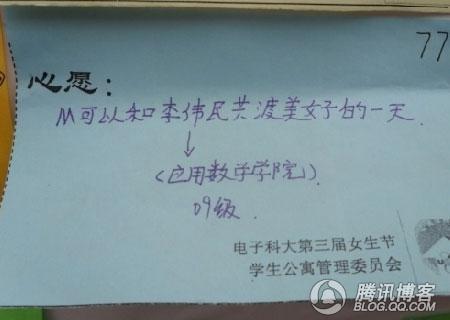 77
心愿：
从可以和李伟民共渡美好的一天.
↓
(应用数学学院)
09级.
电子科大第三届女生节
学生公寓管理委员会
腾讯博客
BLOG.QQ.COM